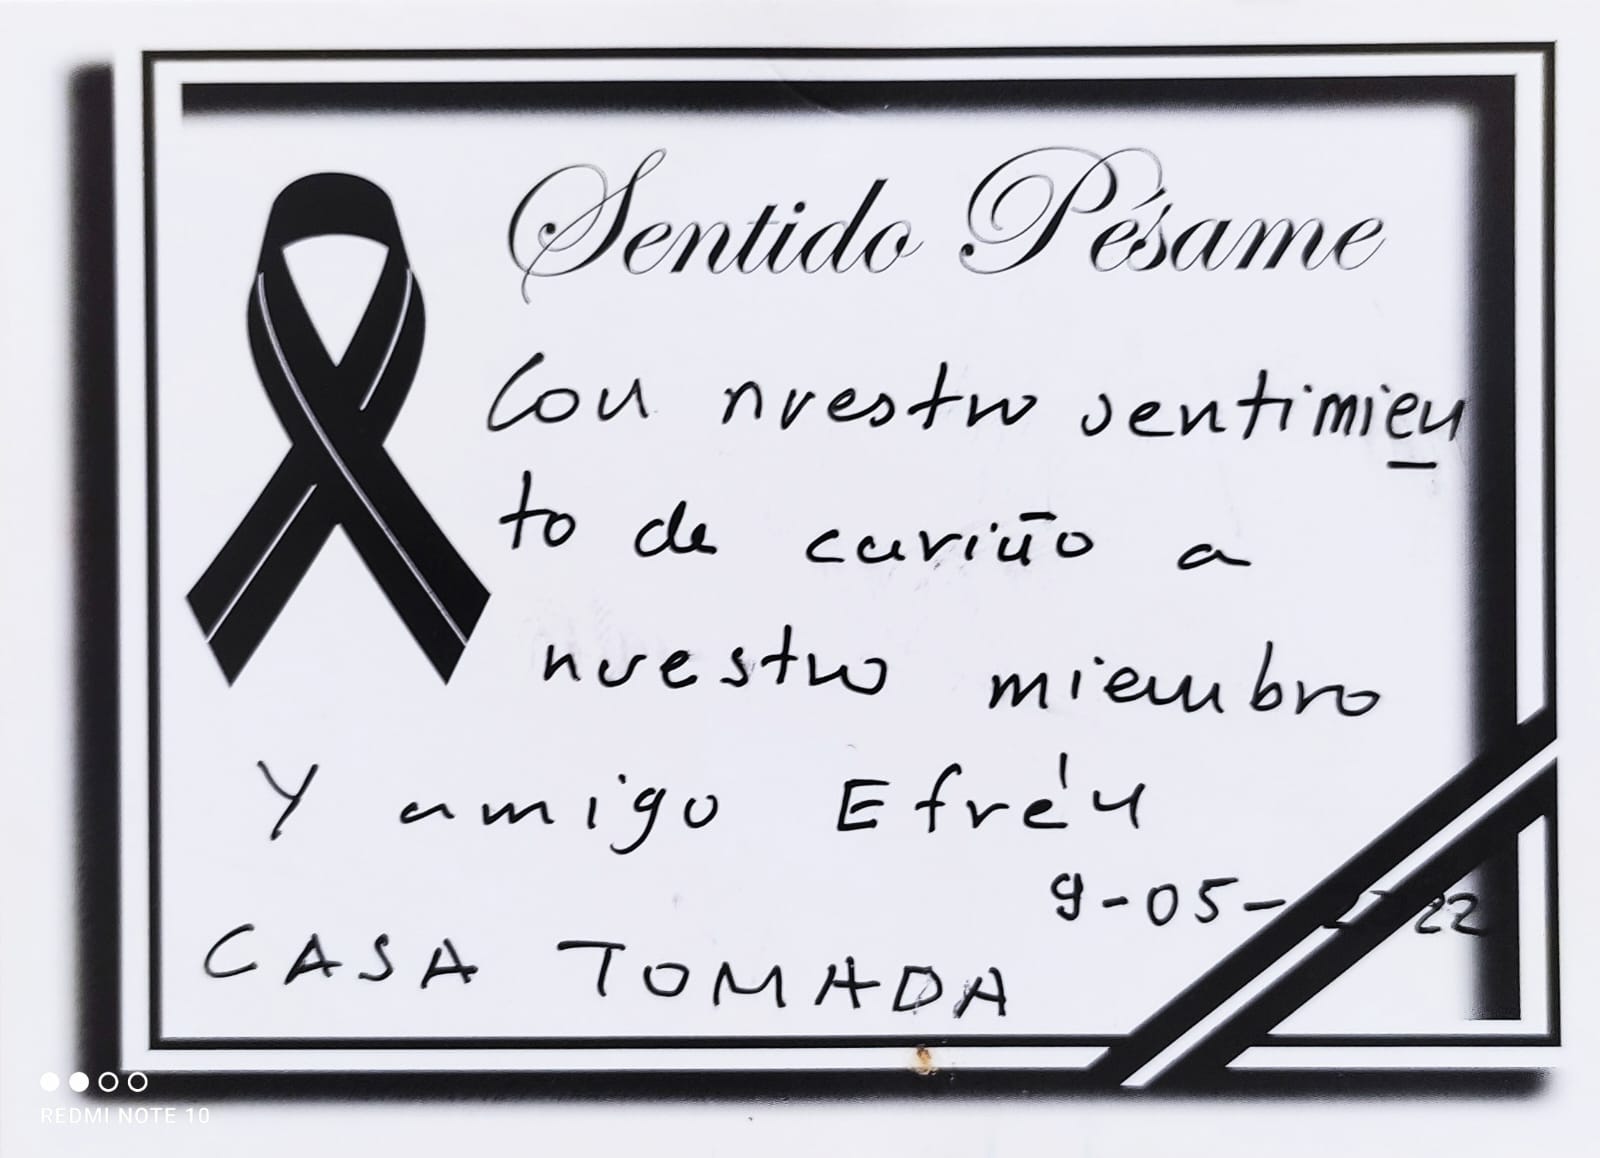 Sentido Pésame
Con nuestro sentimien
to de cariño a
nuestro miembro
Y amigo Efrén
9-05-2022
CASA TOMADA
REDMI NOTE 10